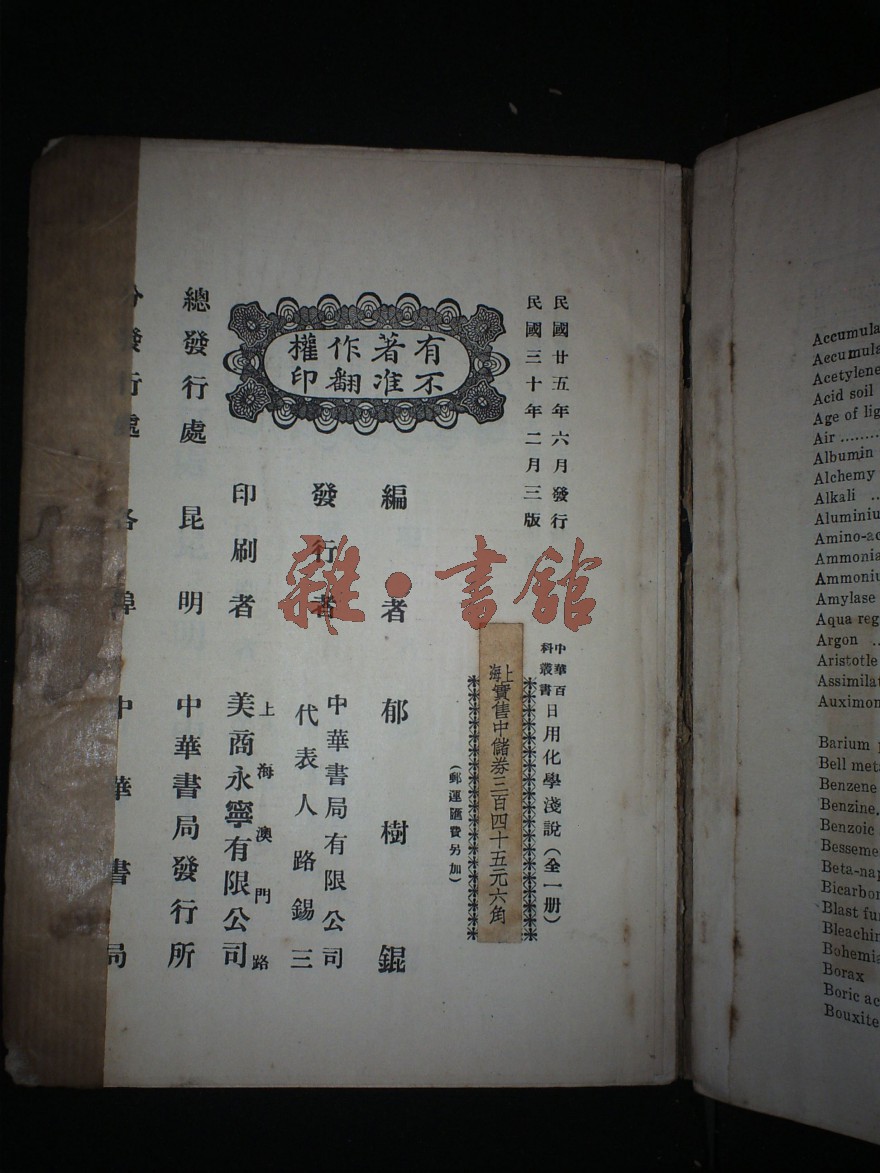 民國廿五年六月發行
民國三十年二月三版
中華百科叢書
日用化學淺說（全一册）
上海實售中儲券三百四十五元六角
（郵運匯費另加）
有不
著准
作翻
權印
編者 郁樹錕
發行者 中華書局有限公司
代表人 路錫三
印刷者 上海澳門路
美商永寧有限公司
總發行處 昆明 中華書局發行所
分發行處 各埠 中華書局
雜·書館
Accumula
Accumula
Acetylene
Acid soil
Age of lig
Air ........
Albumin
Alchemy
Alkali ..
Aluminiu
Amino-ac
Ammonia
Ammoniu
Amylase
Aqua reg
Argon ..
Aristotle
Assimilat
Auximon
Barium p
Bell meta
Benzene
Benzine.
Benzoic
Besseme
Beta-nap
Bicarbon
Blast fur
Bleachin
Bohemia
Borax
Boric ac
Bouxite